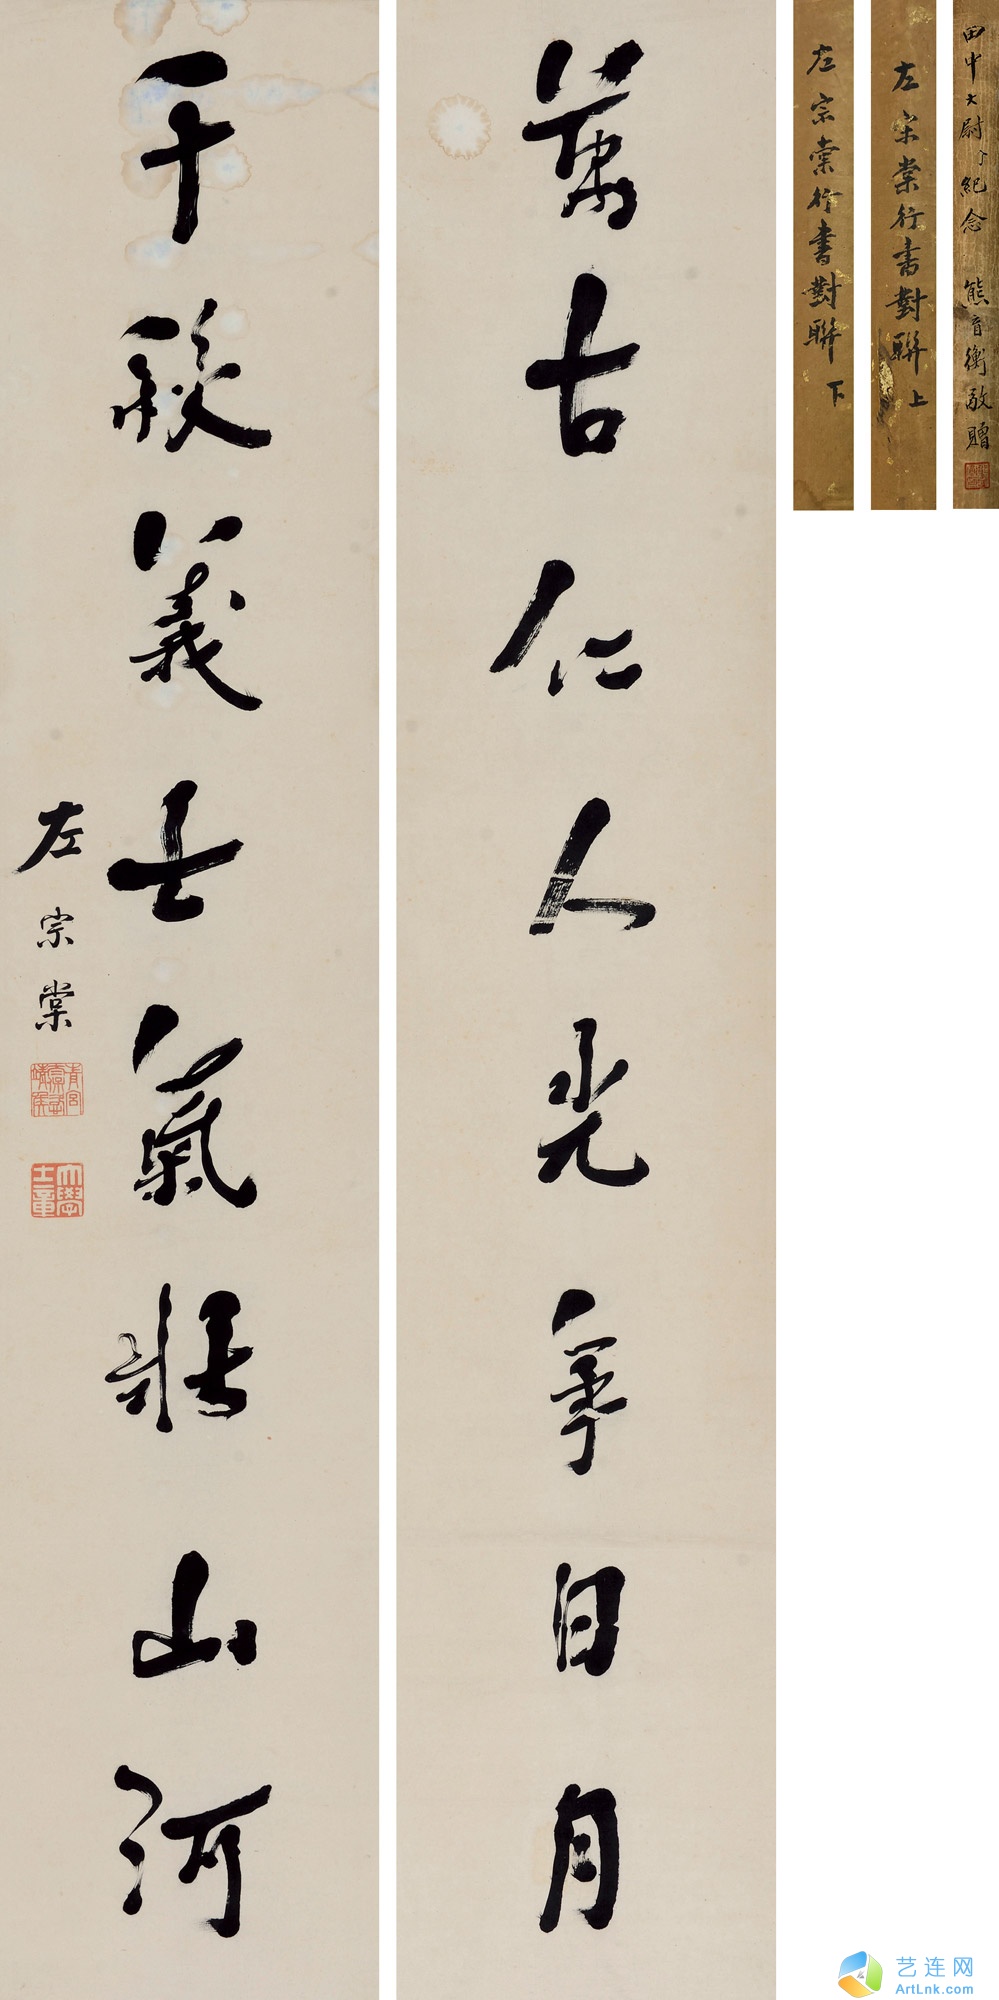 萬古仁人光爭日月
千秋義士氣壯山河
左宗棠
青宮太保恪靖侯
大學士章
左宗棠行書對聯 上
左宗棠行書對聯 下
田中大尉 紀念 熊育衡敬贈
艺连网
ArtLnk.com